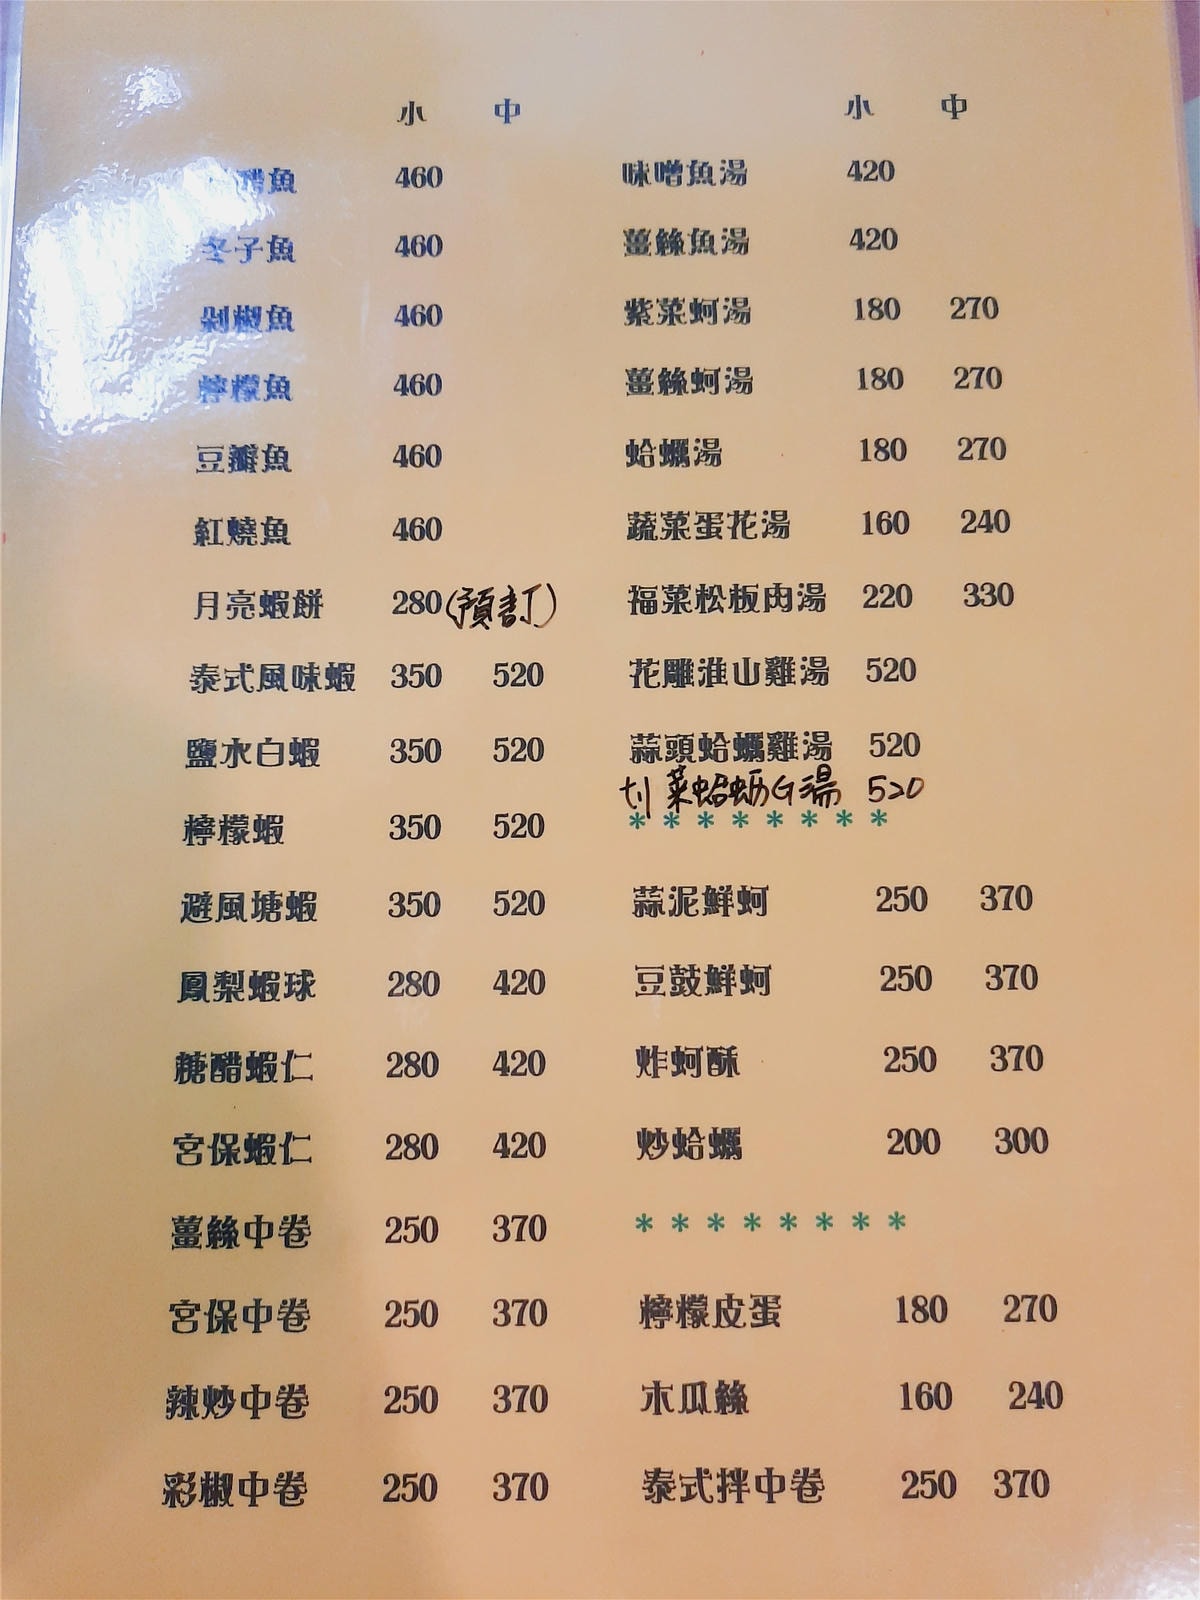 小 中
醋魚 460
冬子魚 460
剁椒魚 460
檸檬魚 460
豆瓣魚 460
紅燒魚 460
月亮蝦餅 280(預訂)
泰式風味蝦 350 520
鹽水白蝦 350 520
檸檬蝦 350 520
避風塘蝦 350 520
鳳梨蝦球 280 420
糖醋蝦仁 280 420
宮保蝦仁 280 420
薑絲中卷 250 370
宮保中卷 250 370
辣炒中卷 250 370
彩椒中卷 250 370
小 中
味噌魚湯 420
薑絲魚湯 420
紫菜蚵湯 180 270
薑絲蚵湯 180 270
蛤蠣湯 180 270
蔬菜蛋花湯 160 240
福菜松板肉湯 220 330
花雕淮山雞湯 520
蒜頭蛤蠣雞湯 520
刈菜蛤蛎G湯 520
* * * * * * * *
蒜泥鮮蚵 250 370
豆鼓鮮蚵 250 370
炸蚵酥 250 370
炒蛤蠣 200 300
* * * * * * * *
檸檬皮蛋 180 270
木瓜絲 160 240
泰式拌中卷 250 370